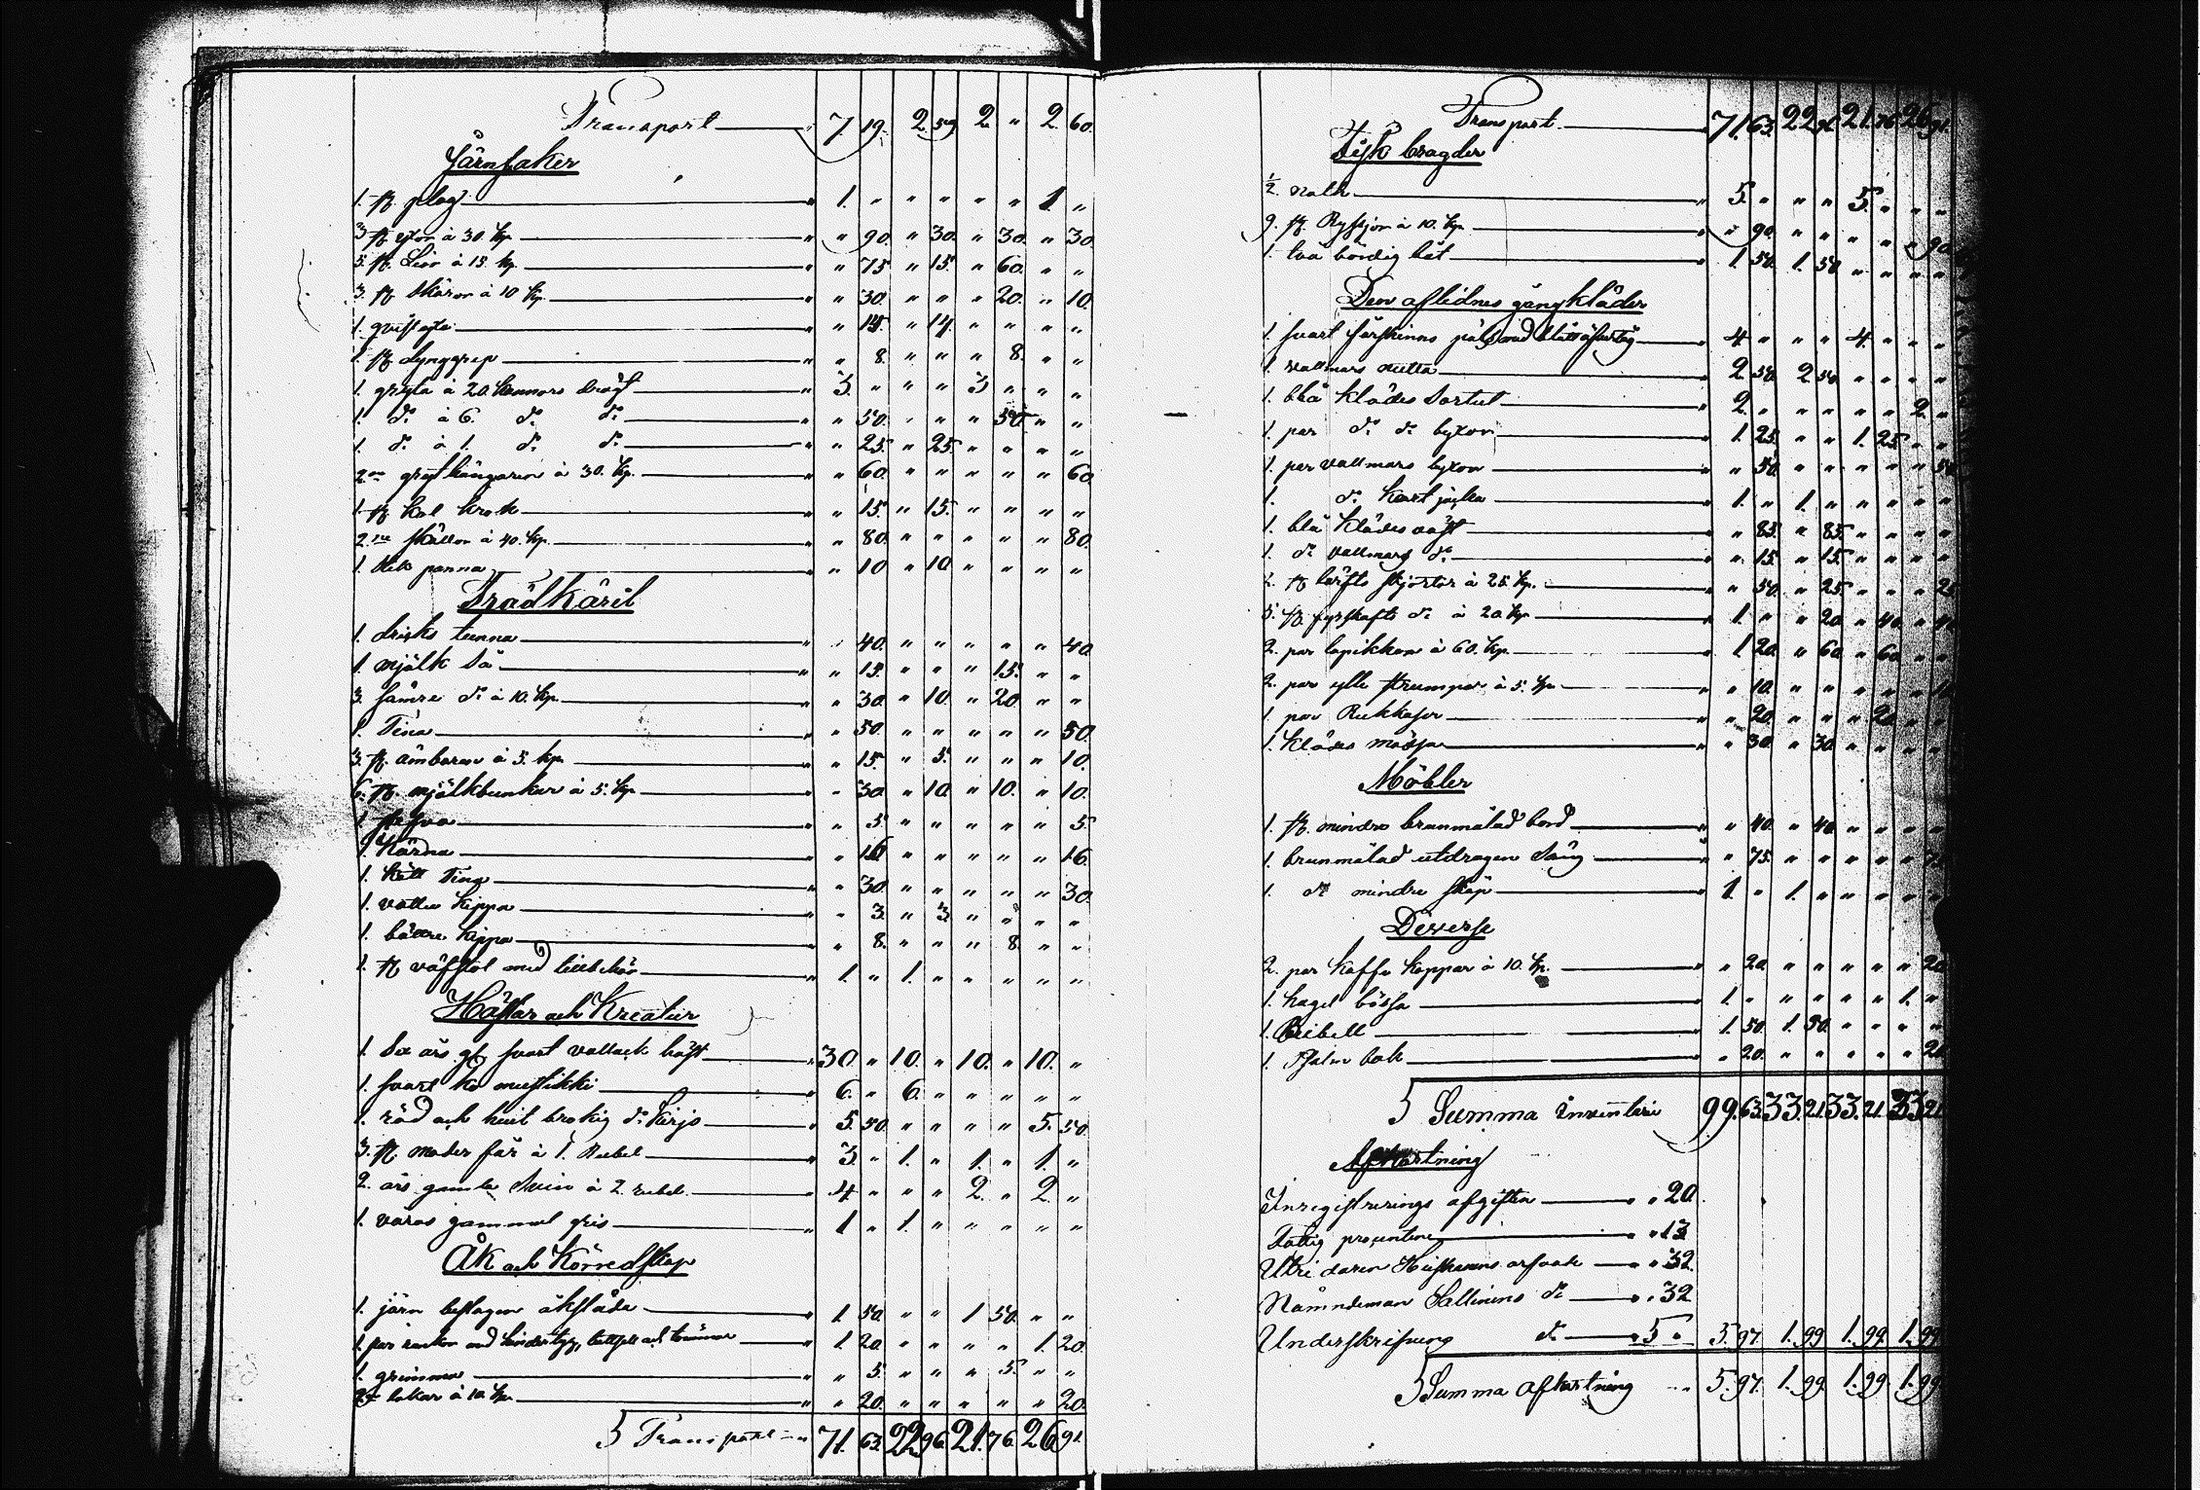 Transport — " 7. 19. 2. 59. 2. " 2. 60.
Järnsaker
1. st. plog — " 1. " " " " " 1. "
3. st. yxor à 30. kp. — " " 90. " 30. " 30. " 30.
5. st. Lior à 15. kp. — " " 75 " 15. " 60. " "
3. st. skäror à 10 kp. — " " 30. " " " 20. " 10.
1. — " " 14. " 14. " " " "
1. st. dynggrep — " " 8. " " " 8. " "
1. gryta à 20. kannors drägt — " 3. " " " 3 " " "
1. d:o à 6. d:o d:o — " " 50. " " " 50. " "
1. d:o à 1. d:o d:o — " " 25. " 25. " " " "
2:ne grythängaren à 30. kp. — " " 60. " " " " " 60.
1. st. kol krok — " " 15. " 15. " " " "
2:ne skällor à 40. kp. — " " 80. " " " " " 80.
1. panna — " " 10 " 10 " " " "
Trädkäril
1. dricks tunna — " " 40. " " " " " 40.
1. mjölk så — " " 15. " " " 15. " "
3. sämre d:o à 10. kp. — " " 30. " 10. " 20. " "
1. Tina — " " 50. " " " " " 50.
3. st. ämbaren à 5. kp. — " " 15. " 5. " " " 10.
6. st. mjölkbunkar à 5. kp. — " " 30. " 10. " 10. " 10.
1. — " " 5. " " " " " 5.
1. Kärna — " " 16 " " " " " 16.
1. Kött Tina — " " 30. " " " " " 30.
1. vatten kippa — " " 3. " 3. " " " "
1. bättre kippa — " " 8. " " " 8. " "
1. st. väfstol med tillbehör — " 1. " 1. " " " " "
Hästar och Kreatur
1. års gl. svart vallack häst — " 30. " 10. " 10. " 10. "
1. svart ko mustikki — " 6. " 6. " " " " "
1. röd och hvit brokig d:o Kirjo — " 5. 50. " " " " 5. 50.
3. st. moder får à 1. Rubel — " 3. " 1. " 1. " 1. "
2. års gamla Svin à 2 rubel — " 4 " " " 2. " 2. "
1. våras gammal gris — " 1 " 1. " " " " "
Åk och Körredskap
1. järn beslagen åksläde — " 1. 50. " " 1 50. " "
1. par — " 1 20. " " " " 1. 20.
1. grimma — " " 5. " " " 5. " "
2:ne lokor à 10. kp. — " " 20. " " " " " 20.
Transport — " 71. 63. 22 96. 21. 76. 26. 91.
Transport — 71. 63. 22 96. 21. 76 26 91.
Fisk bragder
½ — " 5. " " " 5. " " "
9. st. Ryssjor à 10. kp. — " " 90. " " " " " 90.
1. två bördig båt — " 1. 50. 1. 50 " " " "
Den aflidnes gångkläder
1. svart fårskinns päls med — " 4 " " " 4. " " "
1. vallmars — " 2. 50. 2 50. " " " "
1. blå klädes Sortut — " 2. " " " " " 2. "
1. par d:o d:o byxor — " 1. 25. " " 1. 25. " "
1. par vallmars byxor — " " 50. " " " " " 50
1. d:o kort jacka — " 1. " 1. " " " " "
1. blå klädes väst — " " 85. " 85. " " " "
1. d:o vallmars d:o — " " 15. " 15. " " " "
2. st. lärfts skjortor à 25. kp. — " " 50. " 25. " " " 25
5. st. fyrskafts d:o à 20. kp. — " 1. " " 20 " 40. " 40
2. par lapikkan à 60. kp. — " 1. 20. " 60. " 60. " "
2. par ylle strumpor à 5. kp. — " " 10. " " " " " 10
1. par Rukkaser — " " 20. " " " 20. " "
1. klädes mössa — " " 30. " 30. " " " "
Möbler
1. st. mindre brunmålad bord — " " 40. " 40. " " " "
1. brunmålad utdragen Säng — " " 75. " " " " " 75
1. d:o mindre skåp — " 1. " 1. " " " " "
Diverse
2. par kaffe koppar à 10. kp. — " " 20. " " " " " 20
1. hagel bössa — " 1. " " " " " 1. "
1. Beibell — " 1. 50. 1. 50. " " " "
1. Psalm bok — " " 20. " " " " " 20
Summa Inventarii 99. 63. 33. 21. 33. 21. 33 21.
Afkortning
Inregistrerings afgiften — " " 20.
Fattig procenten — " " 13
Utridaren arfvode — " " 32
Nämndeman Sallinens d:o — " " 32
Underskrifning d:o — " 5 " 5. 97. 1. 99. 1. 99. 1. 99
Summa afkortning " " 5. 97. 1. 99 1. 99 1. 99